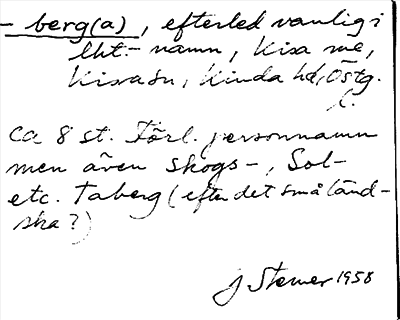 - berg(a), efterled vanlig i
lht.-namn, Kisa
Kisasn, Kinda hd, Östg.
l.
Ca 8 st. Förl. personnamn
men även Skogs-, Sol-
etc. Taberg (efter det småländ-
ska?)
J Sterner 1958